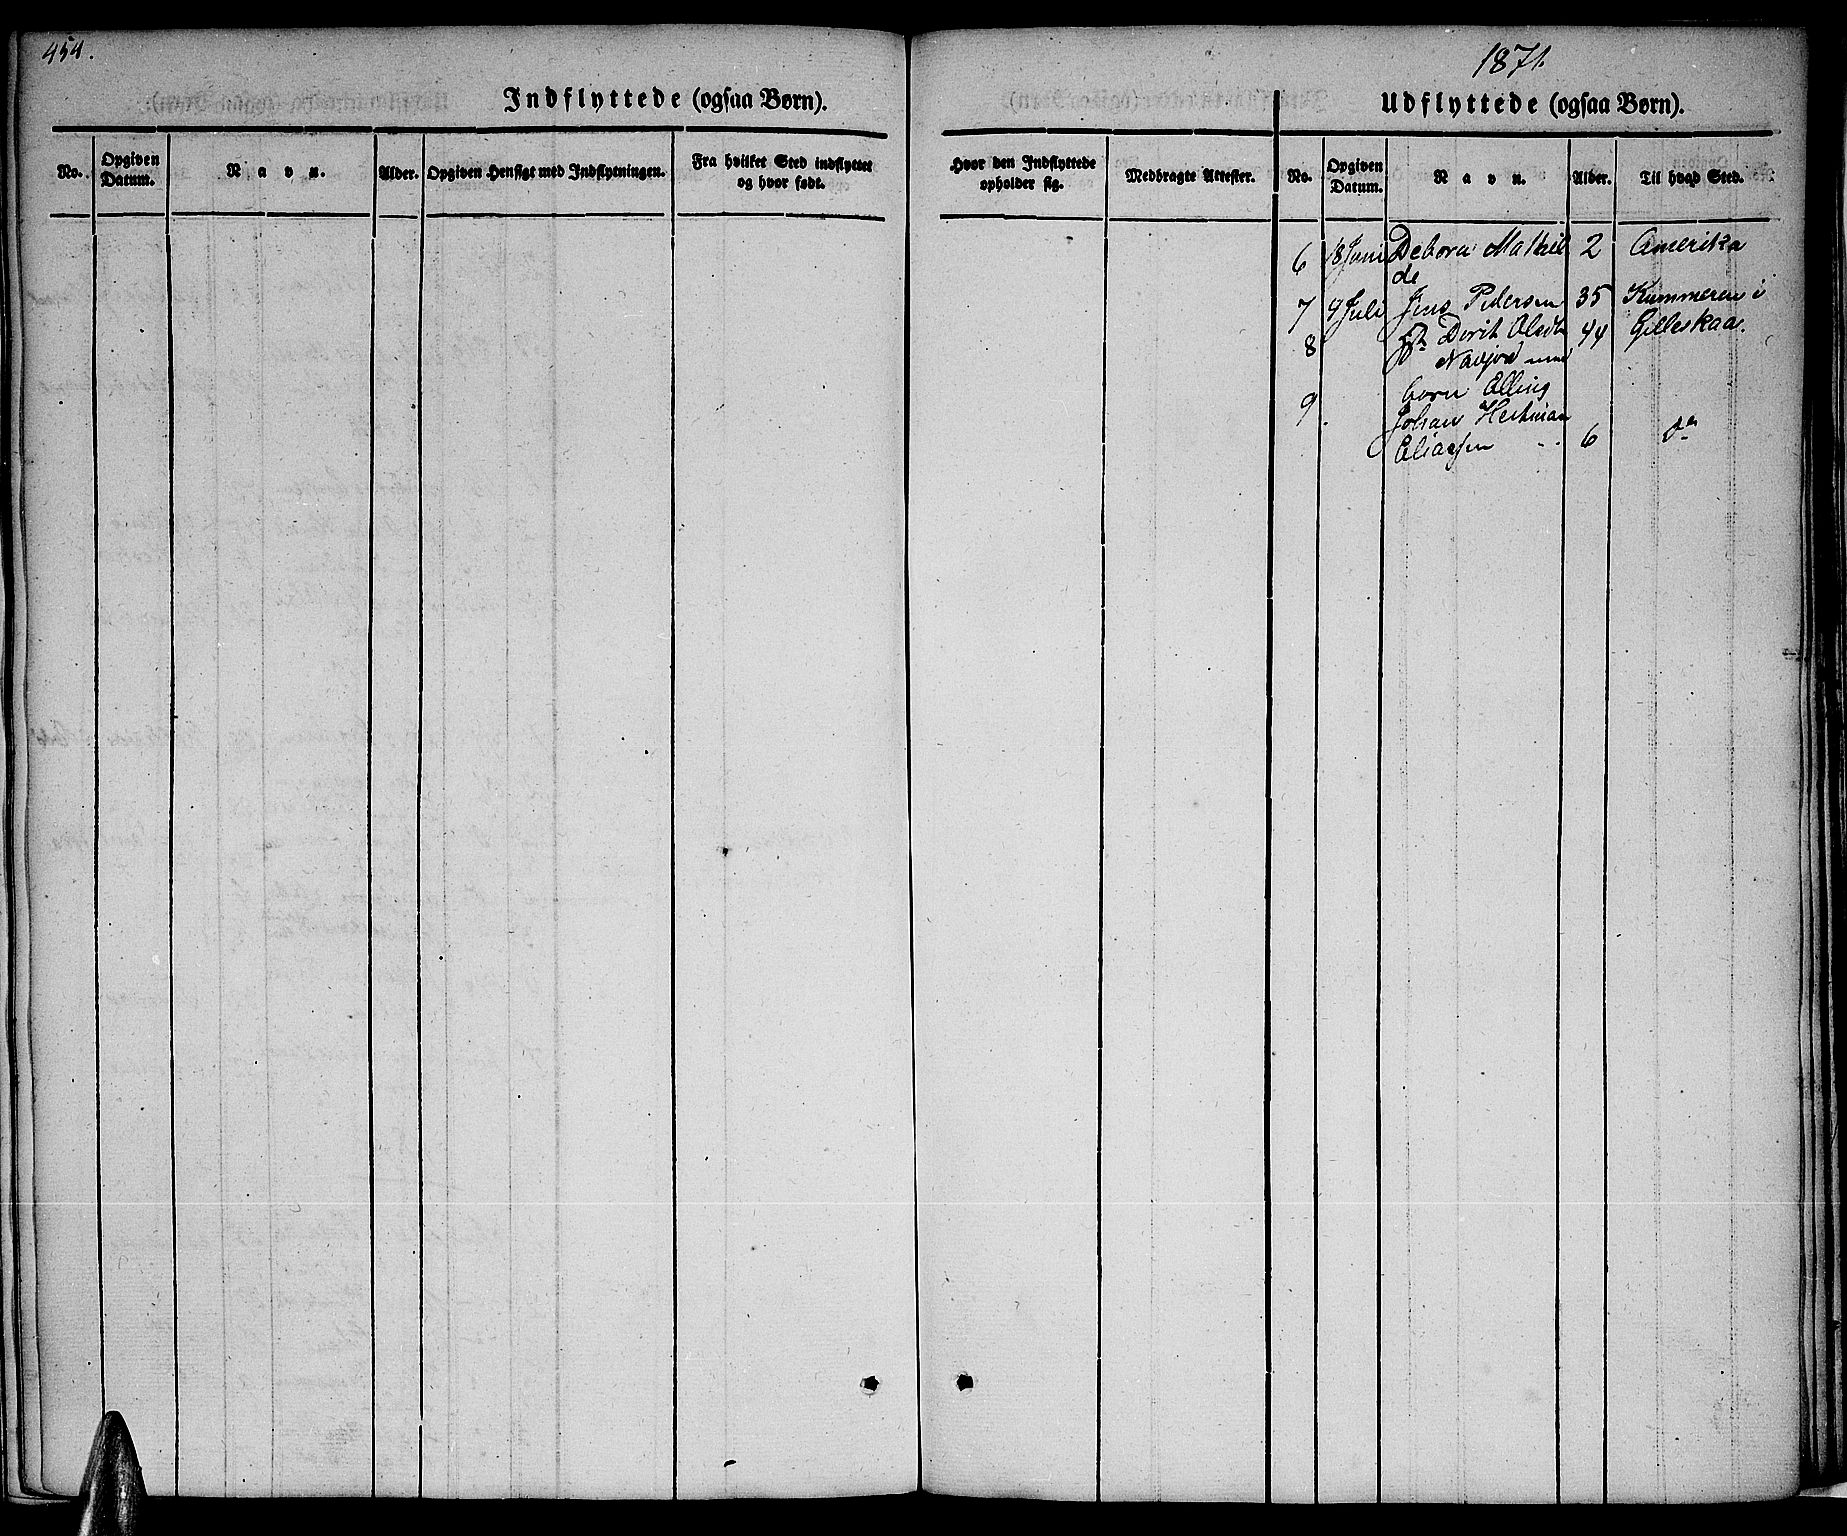 454.
Indflyttede (ogsaa Børn).
No.
Opgiven Datum.
Navn.
Alder.
Opgiven Hensigt med Indflytningen.
Fra hvilket Sted indflyttet
og hvor født.
Hvor den Indflyttede
opholder sig.
Medbragte Attester.
1871.
Udflyttede (ogsaa Børn).
No.
Opgiven Datum.
Navn.
Alder.
Til hvad Sted.
6 18 Juni Debora Mathil 2 Amerika
de
7 9 Juli Jens Pedersen 35 Kummeren i
8 Dorit Olsdtr 44 Gilleskaal.
med
børn Elling
9. Johan Hertman
Eliassen 6 do